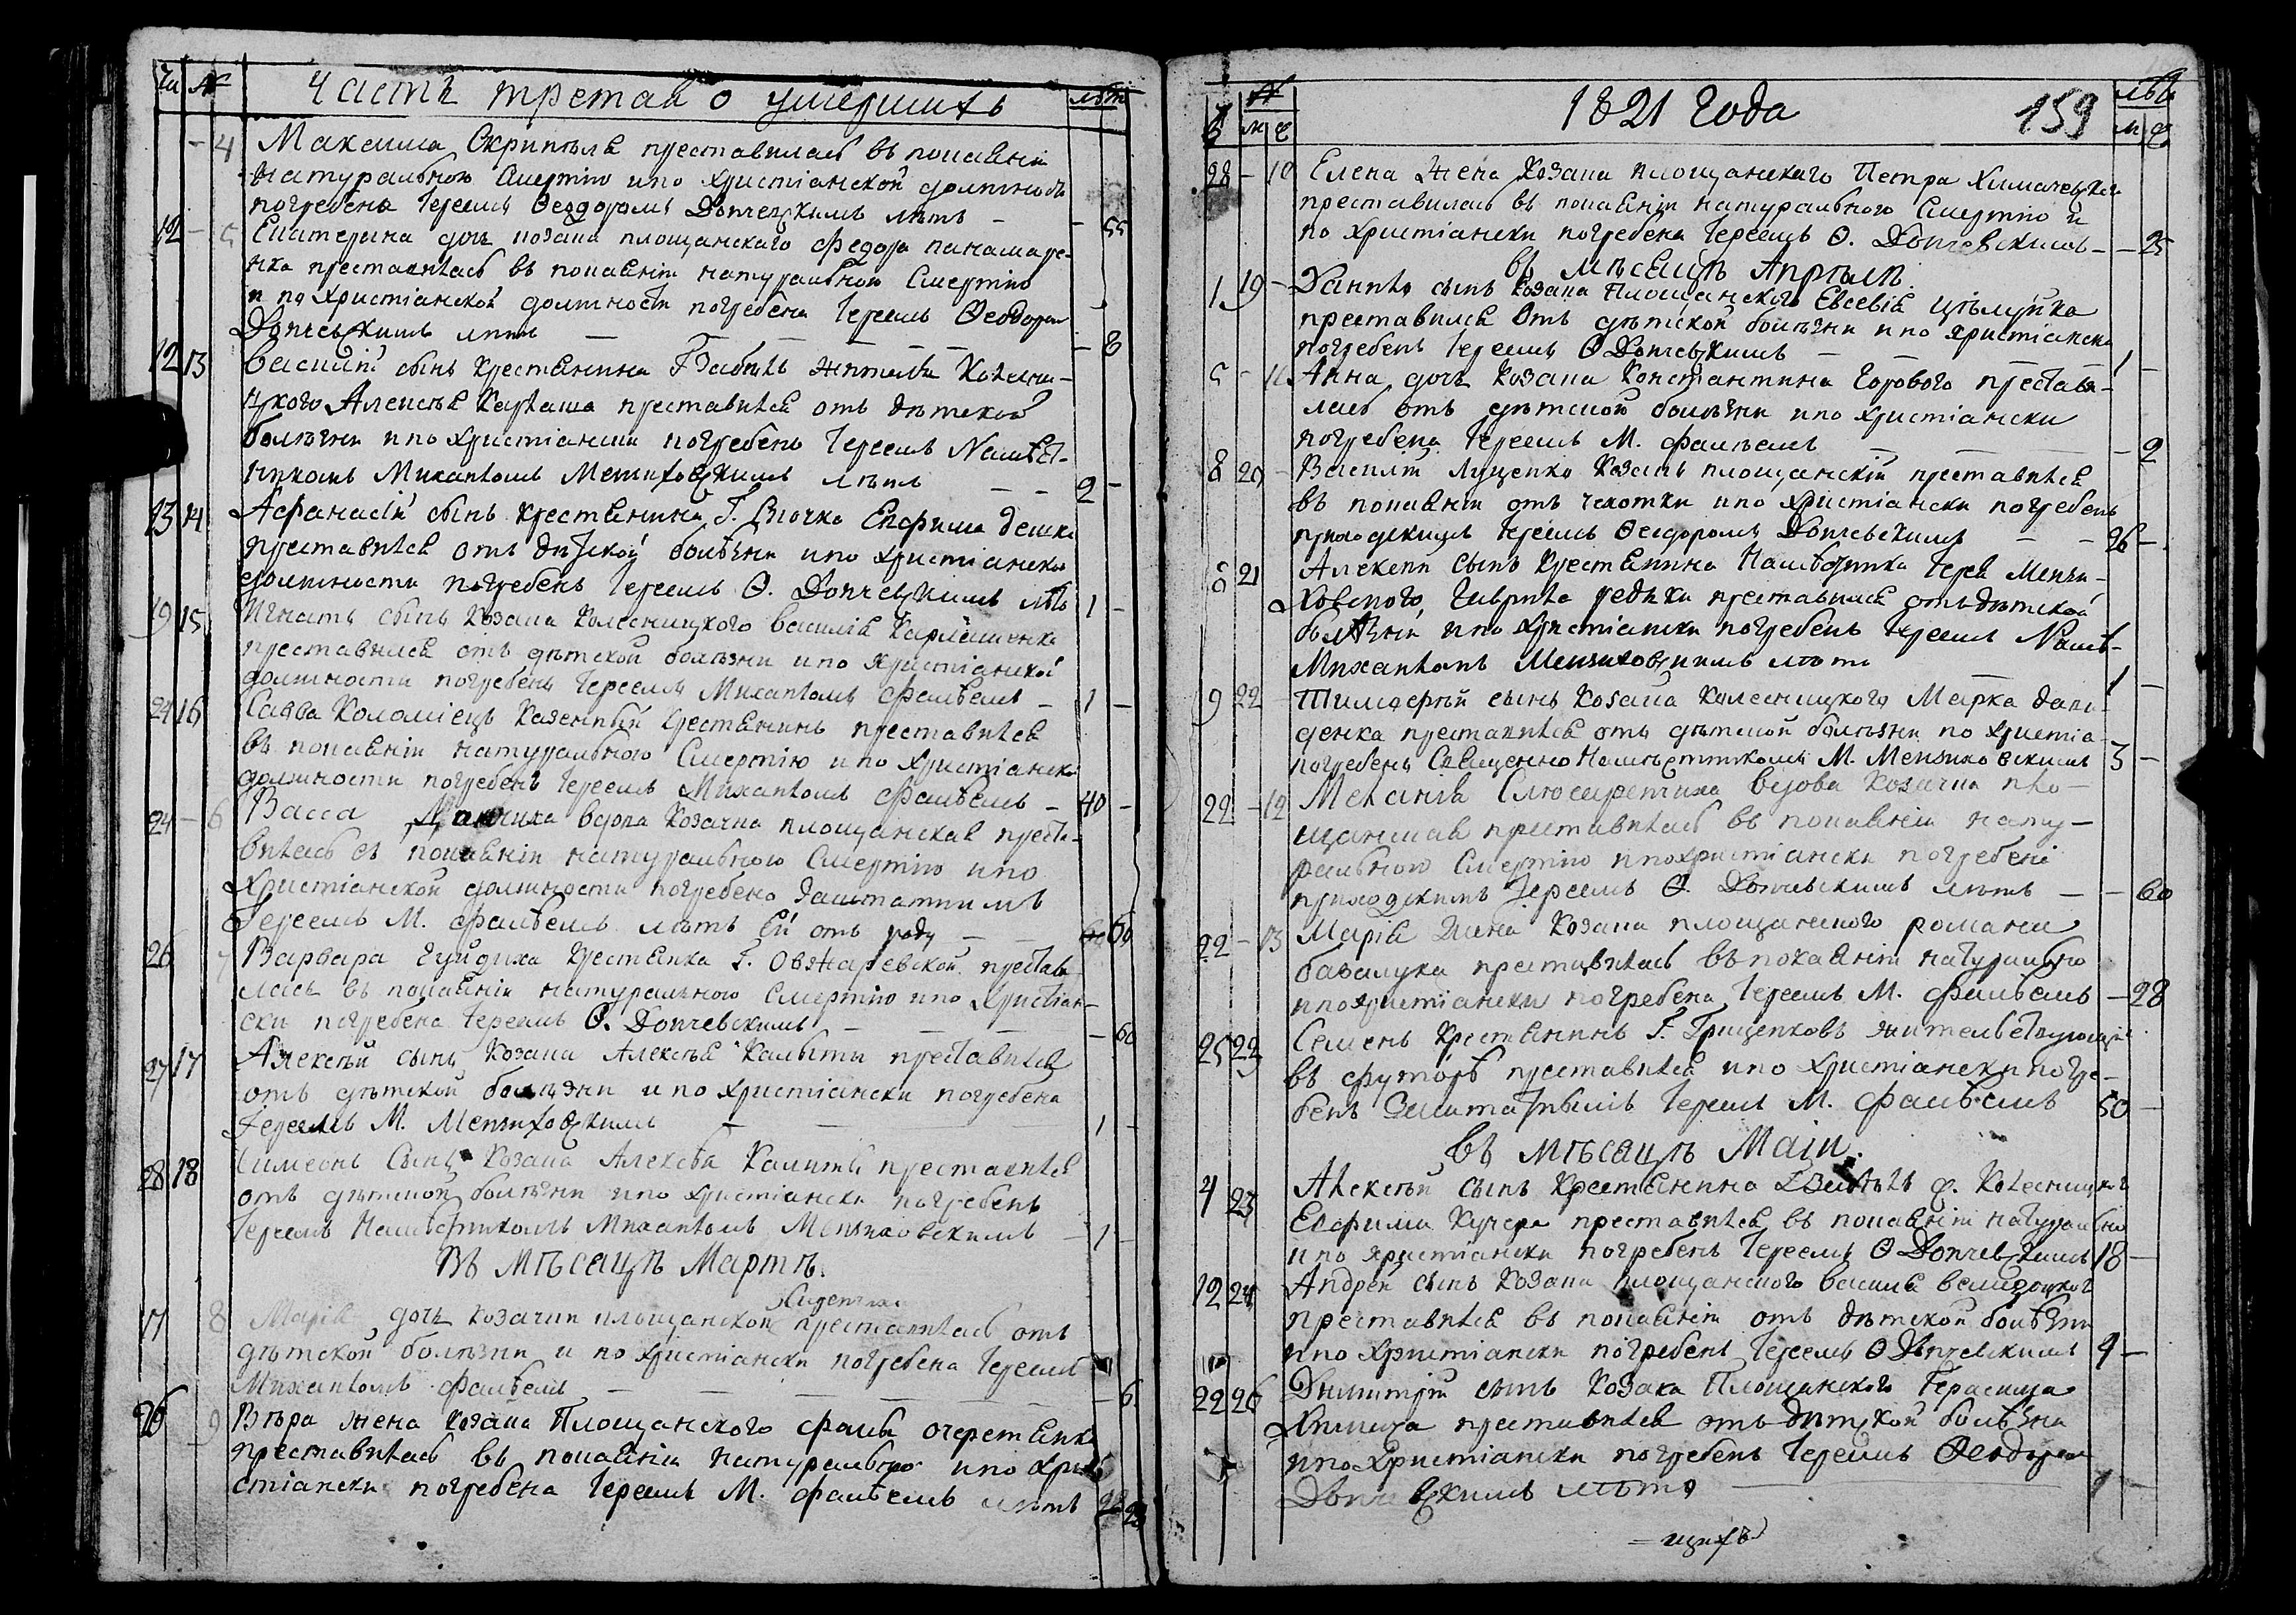 Чи №
Часть третая о умершихъ
лѣтъ
- 4 Максима преставилась въ покаянїи
натуральною смертїю и по христїанской должность
погребена Іереемъ Ѳеодоромъ Дончевскимъ лѣтъ - - 55
12 - 5 Екатерина дочь козака площанскаго Федора панамаре-
нка преставилась въ покаянїи натуральною смертїю
и по христїанской должности погребена Іереемъ Ѳеодором
Дончевскимъ лѣтъ - - 8
12 13 Василїй сынъ крестянина Г жителя Колесни-
цкого Алексѣя Карташа преставился отъ дѣтской
болѣзни и по христїански погребенъ Іереемъ Намѣст-
никомъ Михаиломъ Мензиховскимъ лѣтъ - - 2 -
13 14 Афанасїй сынъ крестянина Г. Влочка Евфима дешка
преставился отъ дѣтской болѣзни и по христїанско
должности погребенъ Іереемъ Ѳ. Дончевскимъ лѣтъ 1 -
19 15 Игнатъ сынъ козака Колесницкого Василїя
преставился отъ дѣтской болѣзни и по христїанской
должности погребенъ Іереемъ Михаиломъ Фалѣемъ - 1 -
24 16 Савва Коломїецъ казенный крестянинъ преставился
въ покаянїи натуральною смертїю и по христїанско
должности погребенъ Іереемъ Михаиломъ Фалѣемъ - 40 -
24 - 6 Васса вдова козачка площанская преста-
вилась въ покаянїи натуральною смертїю и по
христїанской должности погребена Заштатнимъ
Іереемъ М. Фалѣемъ лѣтъ ей отъ роду - - 60
26 7 Варвара Гуйдиха крестянка Г. Овжаревской престави
лась въ покаянїи натуральною смертїю и по христїан-
ски погребена Іереемъ Ѳ. Дончевскимъ - - 60
27 17 Алексѣй сынъ козака Алексѣя Калыты преставился
отъ дѣтской болѣзни и по христїански погребена
Іереемъ М. Мензиховскимъ - 1 -
28 18 Симеонъ сынъ козака Алексѣя Калиты преставился
отъ дѣтской болѣзни и по христїански погребенъ
Іереемъ Намѣстникомъ Михаиломъ Мензиховскимъ - 1 -
Въ мѣсяцѣ Мартѣ.
17 8 Марїя дочь козачки площанской преставилась отъ
дѣтской болѣзни и по христїански погребена Іереемъ
Михаиломъ Фалѣемъ - - 6
26 9 Вѣра жена козака Площанского очеретянк
преставилась въ покаянїи натурально и по хри
стїански погребена Іереемъ М. Фалѣемъ лѣтъ 28
№
1821 Года
159
лѣтъ
м ф м ф
28 - 10 Елена жена козака площанскаго Петра
преставилась въ покаянїи натуральною смертїю и
по христїански погребена Іереемъ Ѳ. Дончевскимъ - - 25
въ мѣсяцѣ Апрѣлѣ.
1 19 - Данило сынъ козака Площанского Евсевїя
преставился отъ дѣтской болѣзни и по христїански
погребенъ Іереемъ Ѳ Дончевскимъ - - 1 -
5 - 11 Анна дочь козака Константина Горового престави-
лась отъ дѣтской болѣзни и по христїански
погребена Іереемъ М. Фалѣемъ - - 2
8 20 - Василїй Луценко козакъ площанскїй преставился
въ покаянїи отъ чахотки и по христїански погребенъ
приходскимъ Іереемъ Ѳеодоромъ Дончевскимъ - - 26 -
8 21 Алексей сынъ крестянина Намѣстника Іерея Мензи-
ховского, Гаврила редьки преставился отъ дѣтской
болѣзни и по христїански погребенъ Іереемъ Намѣ-
Михаиломъ Мензиховскимъ лѣтъ - 1 -
9 22 - Тимофтей сынъ козака Колесницкого Марка дани-
денка преставился отъ дѣтской болѣзни по христїа
погребенъ Священно Намѣстникомъ М. Мензиховскимъ 3 -
22 - 12 Меланїя вдова козачка пло-
щанская преставилась въ покаянїи нату-
ральною смертїю и по христїански погребенї
приходскимъ Іереемъ Ѳ. Дончевскимъ лѣтъ - - 60
22 - 13 Марїя жена козака площанского романа
преставилась въ покаянїи натурально
и по христїански погребена Іереемъ М. Фалѣемъ - 28
25 22 Семенъ крестянинъ Г. Гриценковъ жительствующїй
въ футорѣ преставился и по христїански погре-
бенъ Заштатнымъ Іереемъ М. Фалѣемъ 50 -
Въ мѣсяцѣ Маїи.
4 23 Алексѣй сынъ крестянина Колесницког
Евфима Кучера преставился въ покаянїи натурально
и по христїански погребенъ Іереемъ Ѳ Дончевскимъ 18 -
12 24 Андрей сынъ козака площанского василя
преставился въ покаянїи отъ дѣтской болѣзни
и по христїански погребенъ Іереемъ Ѳ Дончевскимъ 9 -
22 26 Димитрїй сынъ козака Площанского Герасима
преставился отъ дѣтской болѣзни
и по христїански погребенъ Іереемъ Ѳеодором
Дончевскимъ лѣто - 1 -